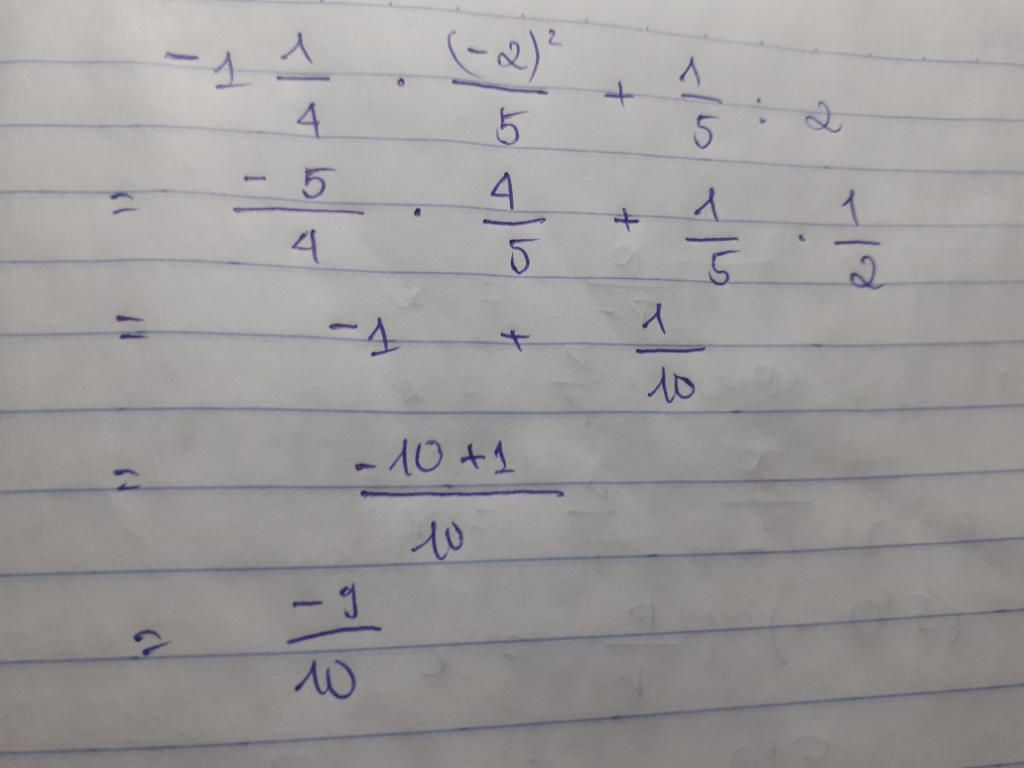 -1 1/4 · (-2)²/5 + 1/5 : 2
= -5/4 · 4/5 + 1/5 · 1/2
= -1 + 1/10
= -10+1/10
= -9/10